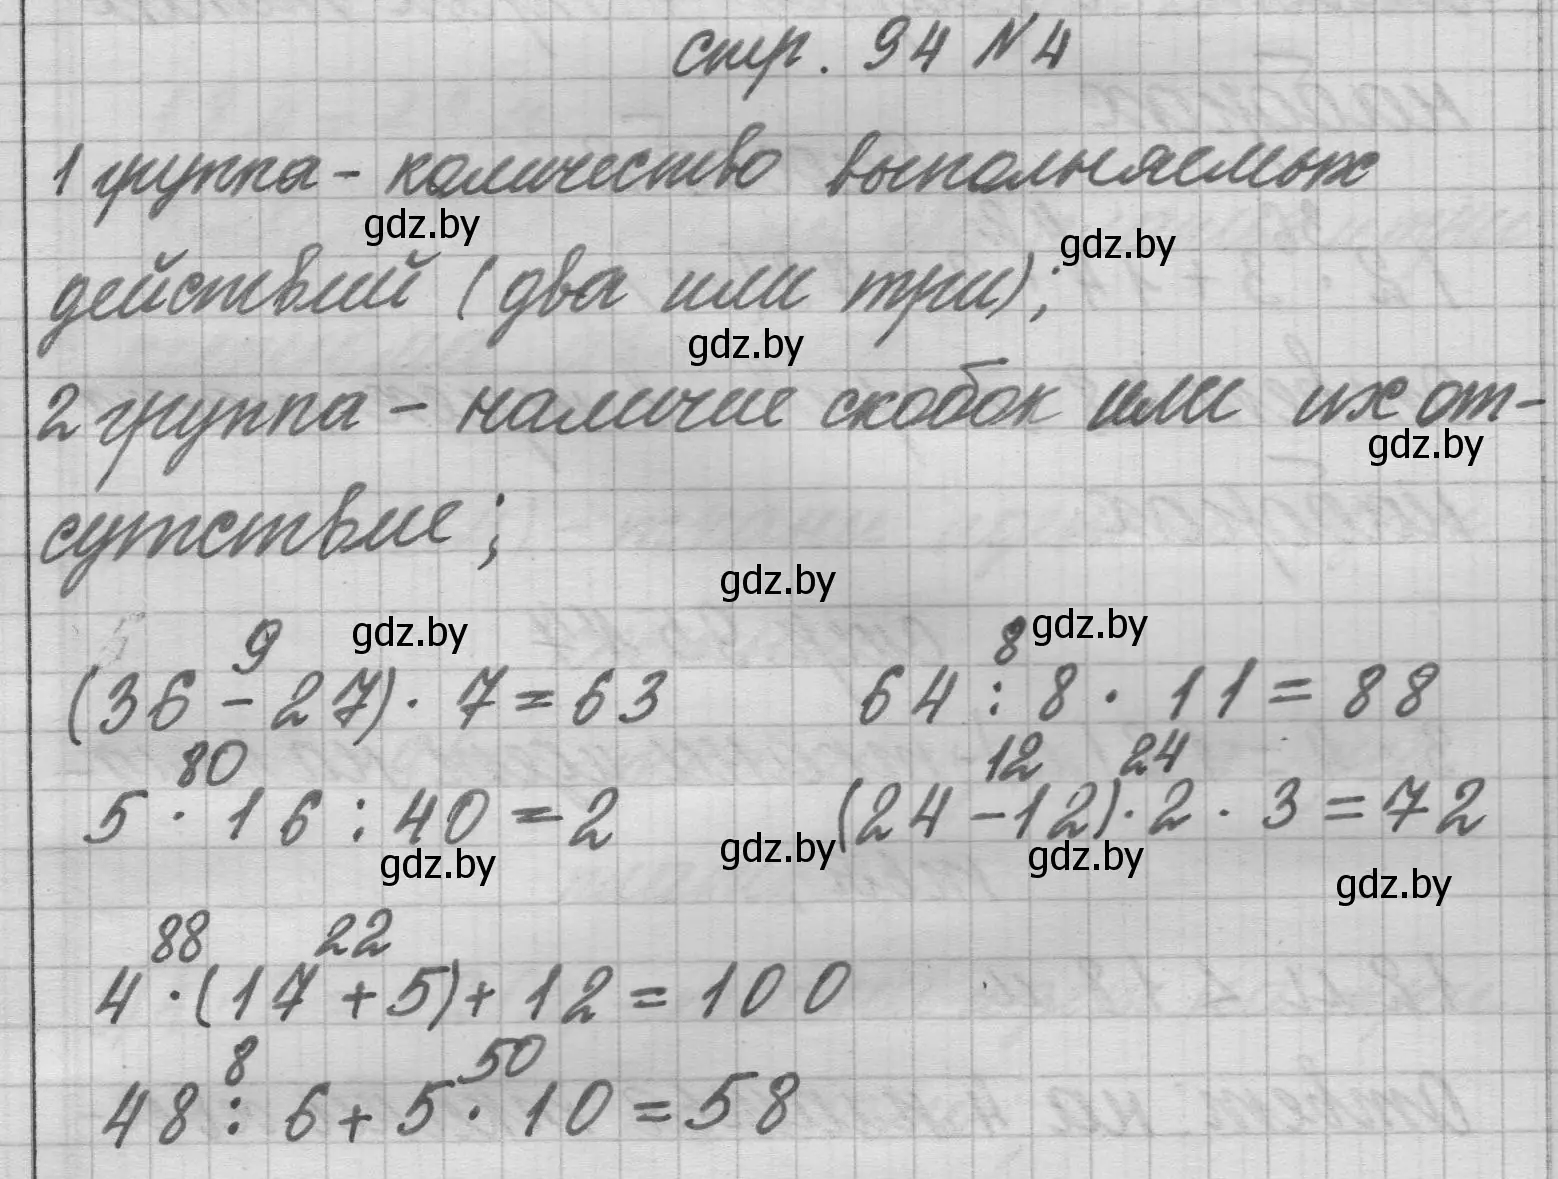 стр. 94 № 4
1 группа - количество выполняемых
gdz.by gdz.by
действий (два или три);
gdz.by
2 группа - наличие скобок или их от-
gdz.by
сутствие;
gdz.by
gdz.by gdz.by
9 8
(36 - 27) · 7 = 63 64 : 8 · 11 = 88
80 12 24
5 · 16 : 40 = 2 (24 - 12) · 2 · 3 = 72
gdz.by gdz.by gdz.by gdz.by
88 22
4 · (17 + 5) + 12 = 100
8 50
48 : 6 + 5 · 10 = 58